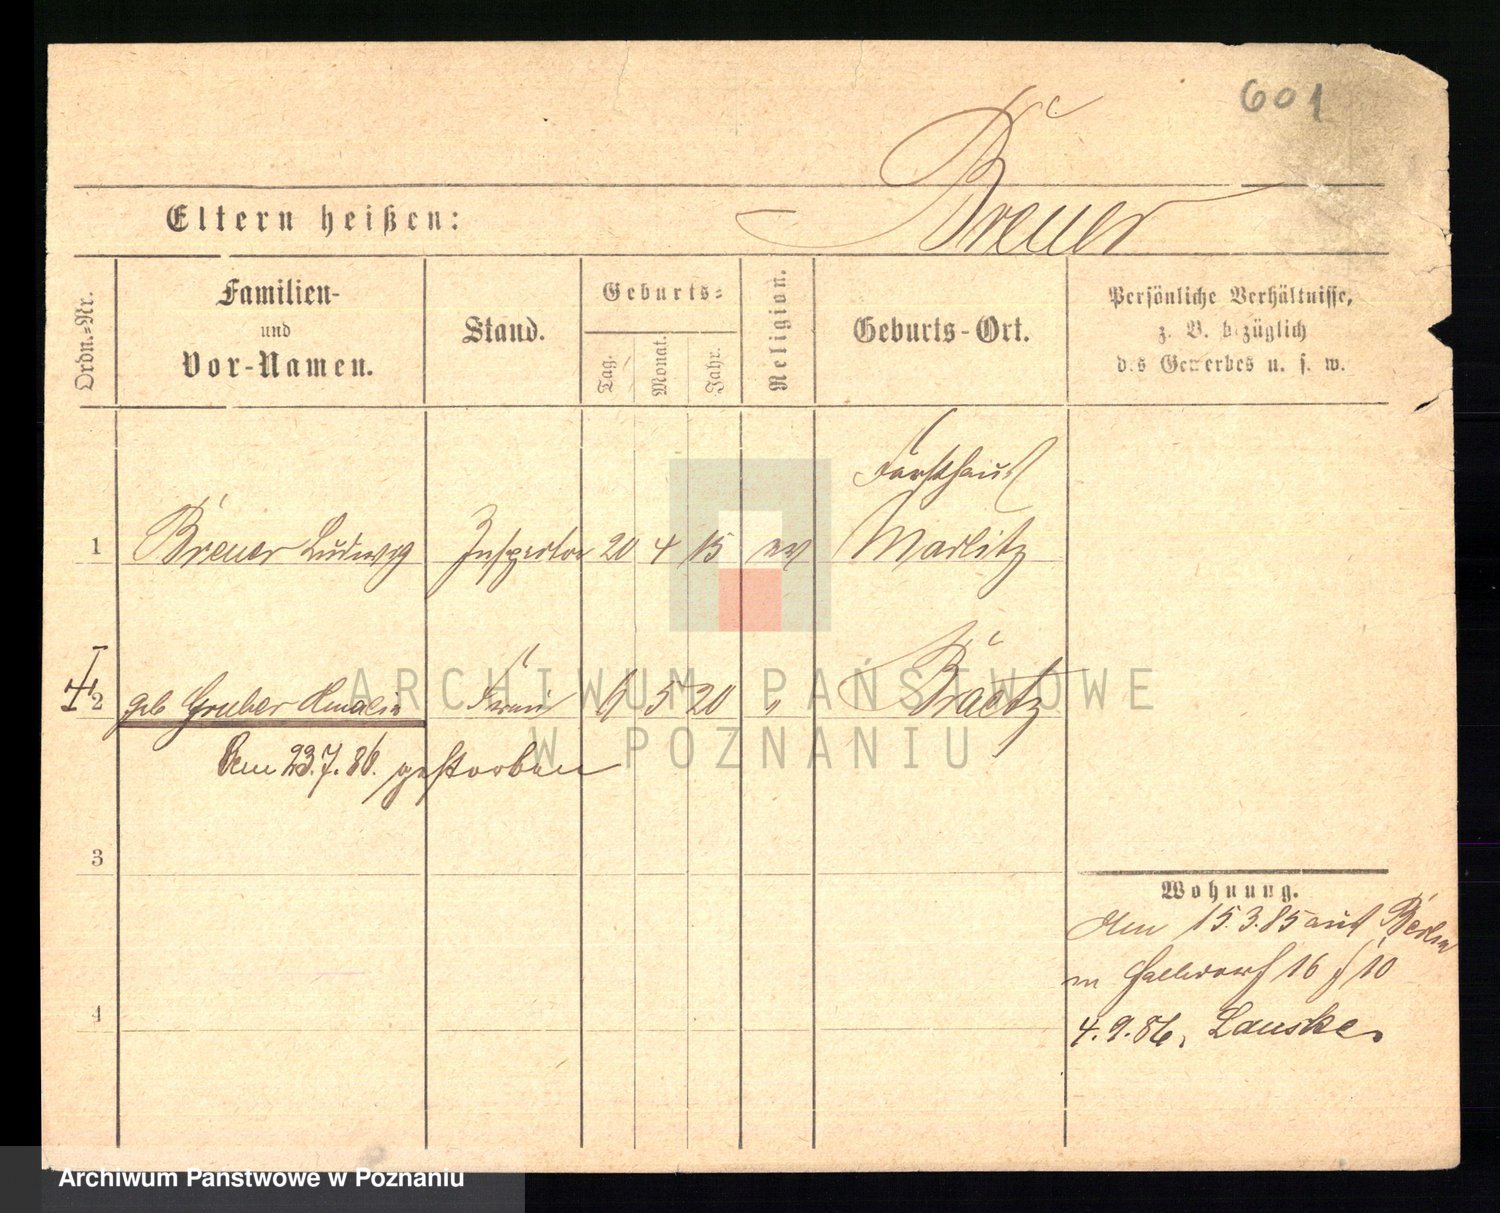 601
Breuer
Eltern heißen:
Ordn.-Nr.
Familien-
und
Vor-Namen.
Stand.
Geburts-
Tag.
Monat.
Jahr.
Religion.
Geburts-Ort.
Persönliche Verhältnisse,
z. B. bezüglich
des Gewerbes u. s. w.
Forsthaus
1 Breuer Ludwig Inspector 20 4 15 ev Marlitz
2 geb Gruber Amalie Frau 6 5 20 " Braetz
Am 23.7.86. gestorben
3
Wohnung.
Am 15.3.85 aus Berlin
in Halldorf 16 10
4
4.9.86, Lauske.
ARCHIWUM PAŃSTWOWE
W POZNANIU
Archiwum Państwowe w Poznaniu